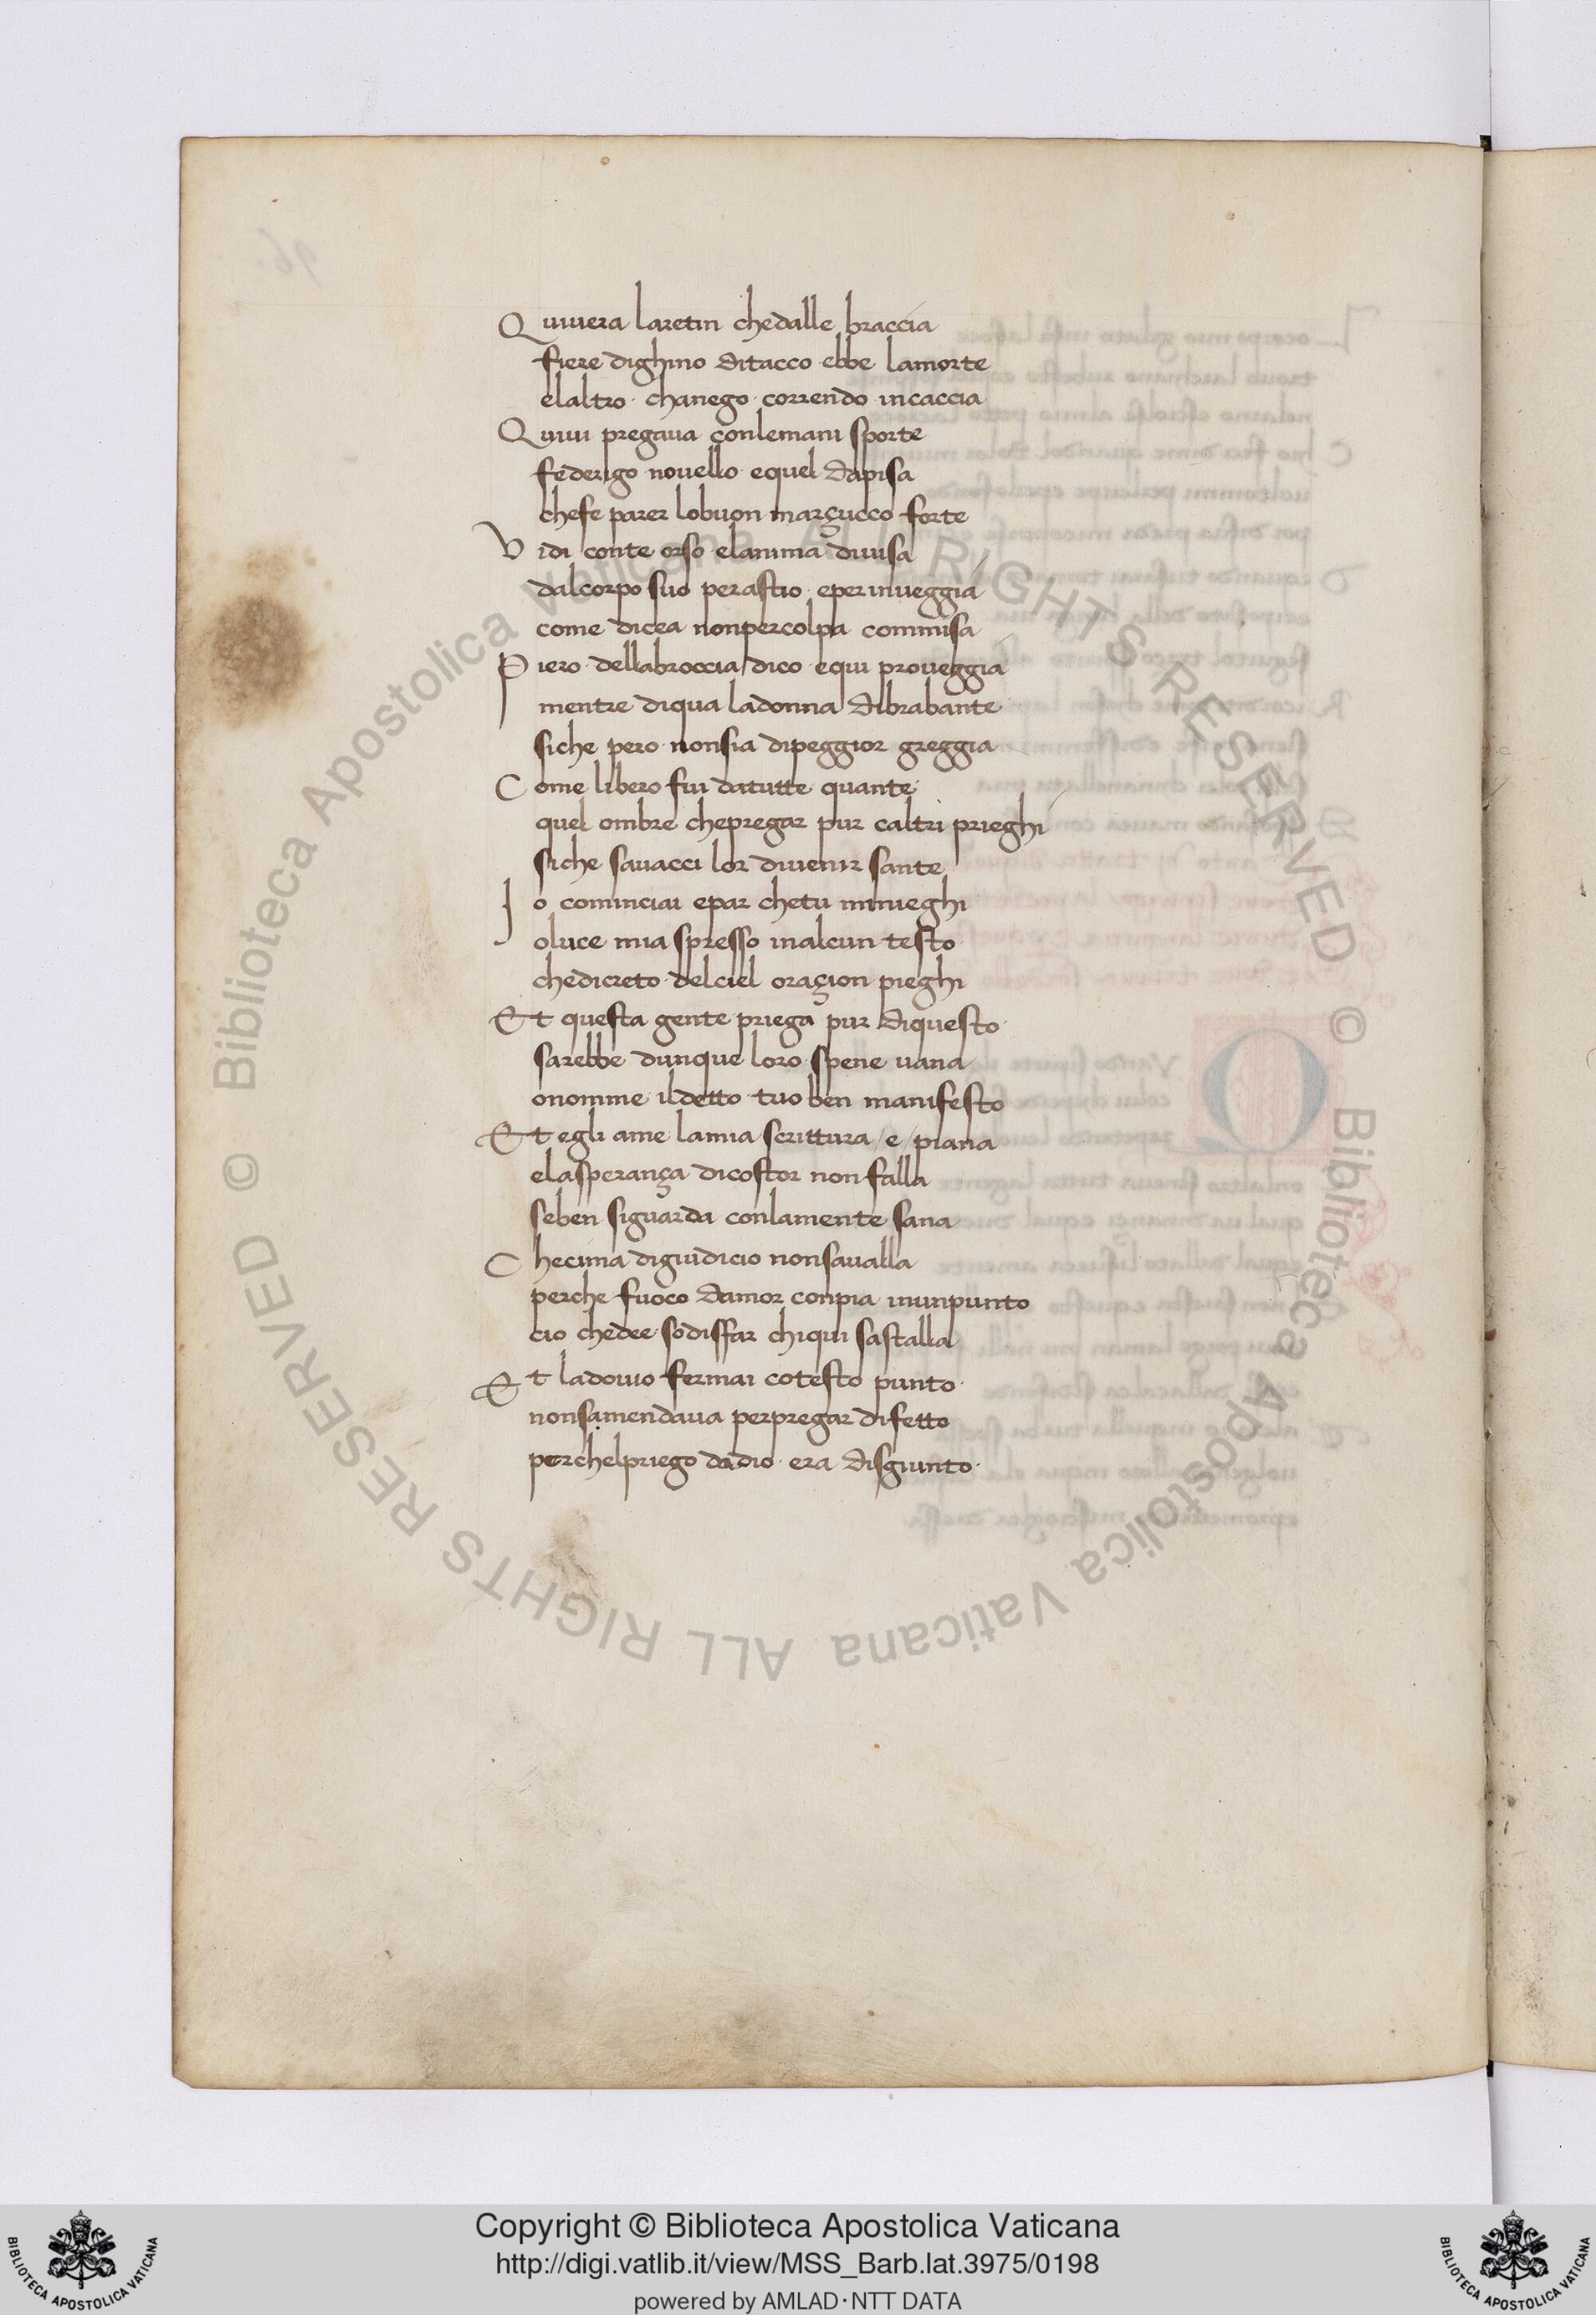 Quiuera laretin chedalle braccia
fiere dighino ditacco ebbe lamorte
elaltro · chanego · correndo incaccia
Quiui pregaua conlemani sporte
federigo nouello equel dapisa
chefe parer lobuon marçucco forte
Vidi conte orso elanima diuisa
dalcorpo suo perastio eperinueggia
come dicea nonpercolpa commisa
Piero dellabroccia dico equi proueggia
mentre diqua ladonna dibrabante
siche pero nonsia dipeggior greggia
Come libero fui datutte quante
quel ombre chepregar pur caltri prieghi
siche sauacci lor diuenir sante
Io cominciai epar chetu mmieghi
oluce mia spresso inalcun testo
chedicreto delciel oraçion pieghi
Et questa gente priega pur diquesto
sarebbe dunque loro spene uana
onomme ildetto tuo ben manifesto
Et egli ame lamia scrittura /e/ piana
elasperança dicostor non falla
seben siguarda conlamente sana
Checima digiudicio nonsaualla
perche fuoco damor conpia inunpunto
cio chedee sodisffar chiqui sastalla
Et ladouio fermai cotesto punto
nonsamendaua perpregar difetto
perchelpriego dadio era disgiunto
Biblioteca Apostolica Vaticana ALL RIGHTS RESERVED © Biblioteca Apostolica Vaticana ALL RIGHTS RESERVED ©
Copyright © Biblioteca Apostolica Vaticana
http://digi.vatlib.it/view/MSS_Barb.lat.3975/0198
powered by AMLAD·NTT DATA
BIBLIOTECA APOSTOLICA VATICANA
BIBLIOTECA APOSTOLICA VATICANA